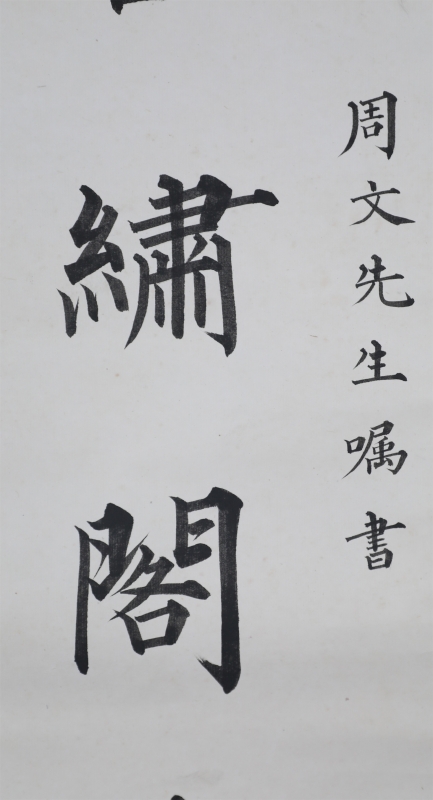 周文先生嘱書
繡閣